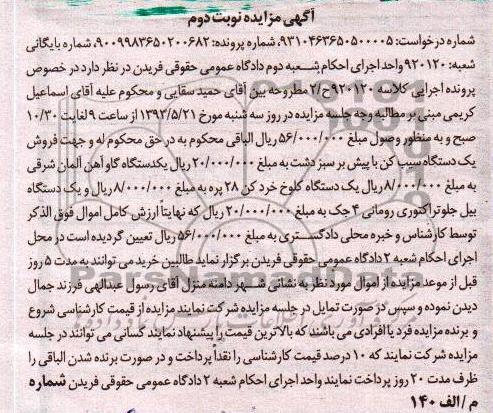 آگهی مزایده نوبت دوم
شماره درخواست: ۹۳۱۰۴۶۳۶۵۰۵۰۰۰۰۵، شماره پرونده: ۹۰۰۹۹۸۳۶۵۰۲۰۰۶۸۲، شماره بایگانی
شعبه: ۹۲۰۱۲۰ واحد اجرای احکام شعبه دوم دادگاه عمومی حقوقی فریدن در نظر دارد در خصوص
پرونده اجرایی کلاسه ۹۲۰۱۲۰ ح/۲ مطروحه بین آقای حمید سقایی و محکوم علیه آقای اسماعیل
کریمی مبنی بر مطالبه وجه جلسه مزایده در روز سه شنبه مورخ ۱۳۹۳/۵/۲۱ از ساعت ۹ لغایت ۱۰/۳۰
صبح و به منظور وصول مبلغ ۵۶/۰۰۰/۰۰۰ ریال الباقی محکوم به در حق محکوم له و جهت فروش
یک دستگاه سیب کن با پیش بر سبز دشت به مبلغ ۲۰/۰۰۰/۰۰۰ ریال یکدستگاه گاو آهن آلمان شرقی
به مبلغ ۸/۰۰۰/۰۰۰ ریال یک دستگاه کلوخ خرد کن ۲۸ پره به مبلغ ۸/۰۰۰/۰۰۰ ریال و یک دستگاه
بیل جلوتراکتوری رومانی ۴ جک به مبلغ ۲۰/۰۰۰/۰۰۰ ریال که نهایتاً ارزش کامل اموال فوق الذکر
توسط کارشناس و خبره محلی دادگستری به مبلغ ۵۶/۰۰۰/۰۰۰ ریال تعیین گردیده است در محل
اجرای احکام شعبه ۲ دادگاه عمومی حقوقی فریدن برگزار نماید طالبین خرید می توانند به مدت ۵ روز
قبل از موعد مزایده از اموال مورد نظر به نشانی شهر دامنه منزل آقای رسول عبدالهی فرزند جمال
دیدن نموده و سپس در صورت تمایل در جلسه مزایده شرکت نمایند مزایده از قیمت کارشناسی شروع
و برنده مزایده فرد یا افرادی می باشند که بالاترین قیمت را پیشنهاد نمایند کسانی می توانند در جلسه
مزایده شرکت نمایند که ۱۰ درصد قیمت کارشناسی را نقداً پرداخت و در صورت برنده شدن الباقی را
ظرف مدت ۲۰ روز پرداخت نمایند واحد اجرای احکام شعبه ۲ دادگاه عمومی حقوقی فریدن شماره
م / الف ۱۴۰
ParsNamadData